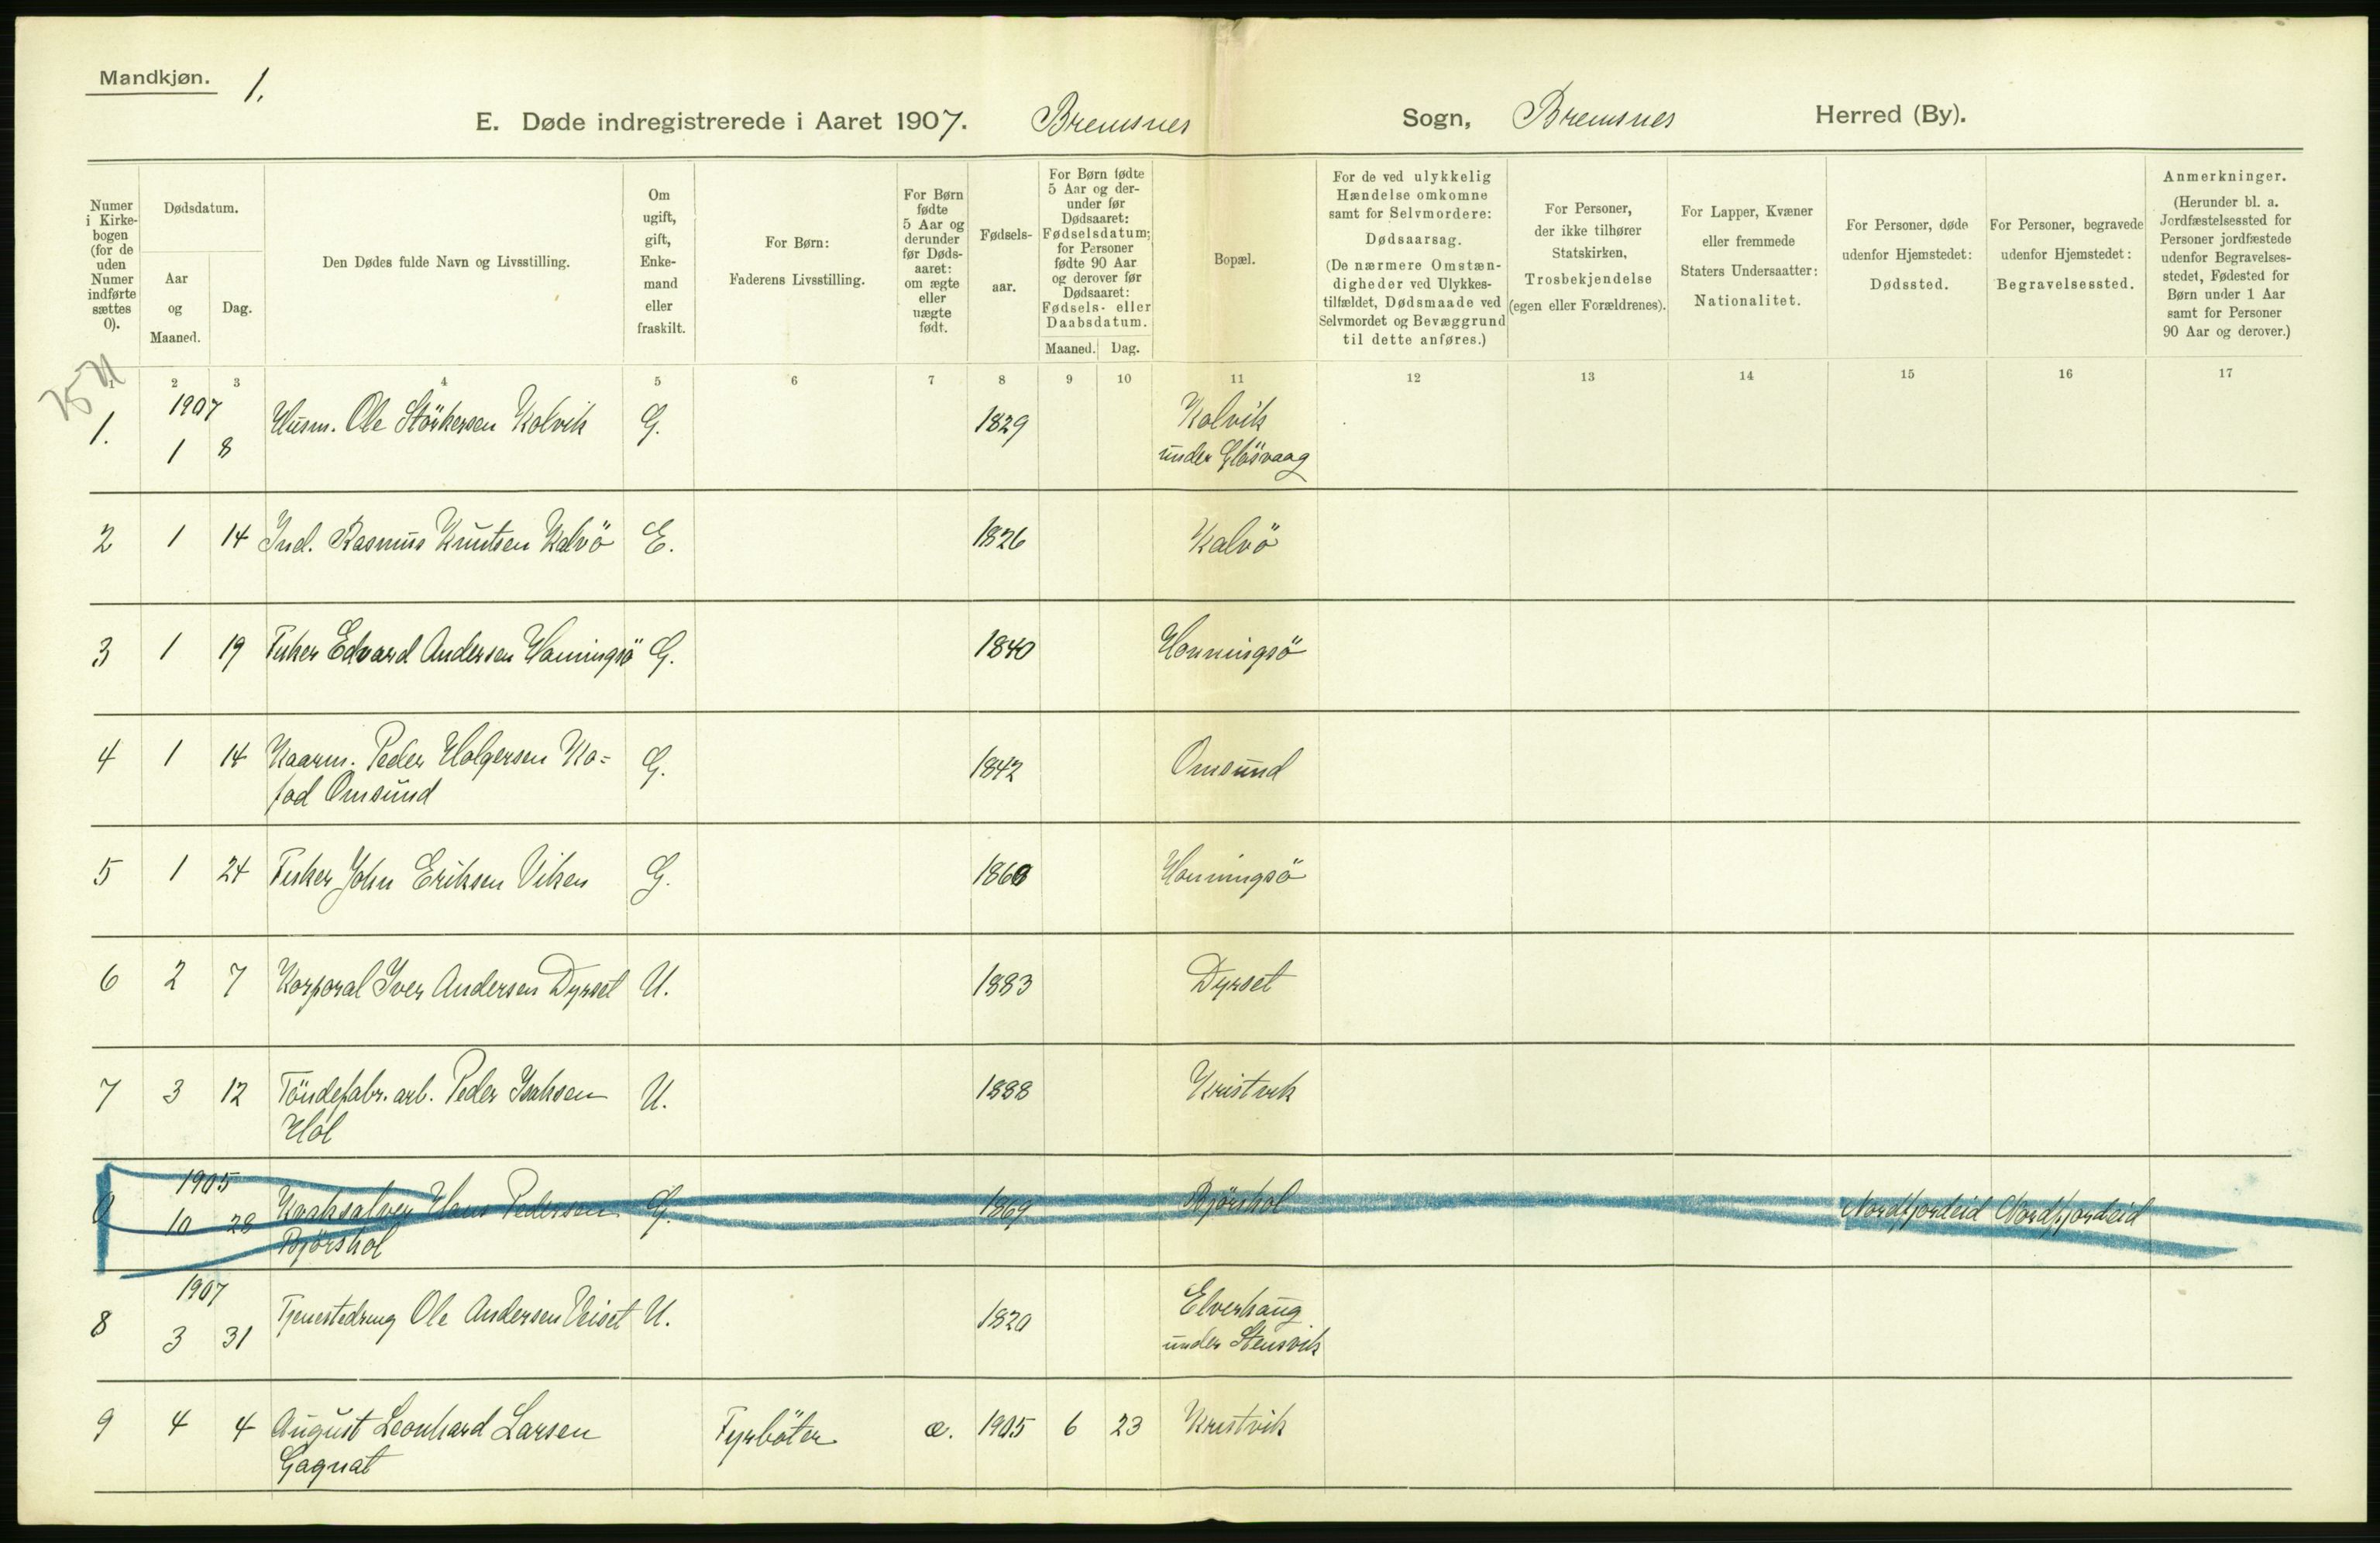 Mandkjøn. 1.
E. Døde indregistrerede i Aaret 1907. Bremsnes Sogn, Bremsnes Herred (By).
Numer
i Kirke-
bogen
(for de
uden
Numer
indførte
sættes
0).
Dødsdatum.
Aar
og
Maaned.
Dag.
Den Dødes fulde Navn og Livsstilling.
Om
ugift,
gift,
Enke-
mand
eller
fraskilt.
For Børn:
Faderens Livsstilling.
For Børn
fødte
5 Aar og
derunder
før Døds-
aaret:
om ægte
eller
uægte
født.
Fødsels-
aar.
For Børn fødte
5 Aar og der-
under før
Dødsaaret:
Fødselsdatum;
for Personer
fødte 90 Aar
og derover før
Dødsaaret:
Fødsels- eller
Daabsdatum.
Maaned. Dag.
Bopæl.
For de ved ulykkelig
Hændelse omkomne
samt for Selvmordere:
Dødsaarsag.
(De nærmere Omstæn-
digheder ved Ulykkes-
tilfældet, Dødsmaade ved
Selvmordet og Bevæggrund
til dette anføres.)
For Personer,
der ikke tilhører
Statskirken,
Trosbekjendelse
(egen eller Forældrenes).
For Lapper, Kvæner
eller fremmede
Staters Undersaatter:
Nationalitet.
For Personer, døde
udenfor Hjemstedet:
Dødssted.
For Personer, begravede
udenfor Hjemstedet:
Begravelsessted.
Anmerkninger.
(Herunder bl. a.
Jordfæstelsessted for
Personer jordfæstede
udenfor Begravelses-
stedet, Fødested for
Børn under 1 Aar
samt for Personer
90 Aar og derover.)
1 2 3 4 5 6 7 8 9 10 11 12 13 14 15 16 17
1907
1. 1 8 Husm. Ole Störkersen Kolvik G. 1829 Kolvik
under Glösvaag
2 1 14 Ind. Rasmus Knutsen Kalvö E. 1826 Kalvö
3 1 19 Fisker Edvard Andersen Honningsö G. 1840 Honningsö
4 1 14 Kaarm. Peder Holgersen Ko=
fod Omsund G. 1842 Omsund
5 1 24 Fisker John Eriksen Viken G. 1860 Honningsö
6 2 7 Korporal Iver Andersen Dyrset U. 1883 Dyrset
7 3 12 Töndefabr. arb. Peder Isaksen U. 1888 Kristvik
Hol
1905
0 10 28 Kvaksalver Hans Pedersen G. 1869 Bjørshol Nordfjordeid Nordfjordeid
Bjørshol
1907
8 3 31 Tjenestedreng Ole Andersen Veiset U. 1820 Elverhaug
under Stensvik
9 4 4 August Leonhard Larsen Fyrböter æ. 1905 6 23 Kristvik
Gagnat